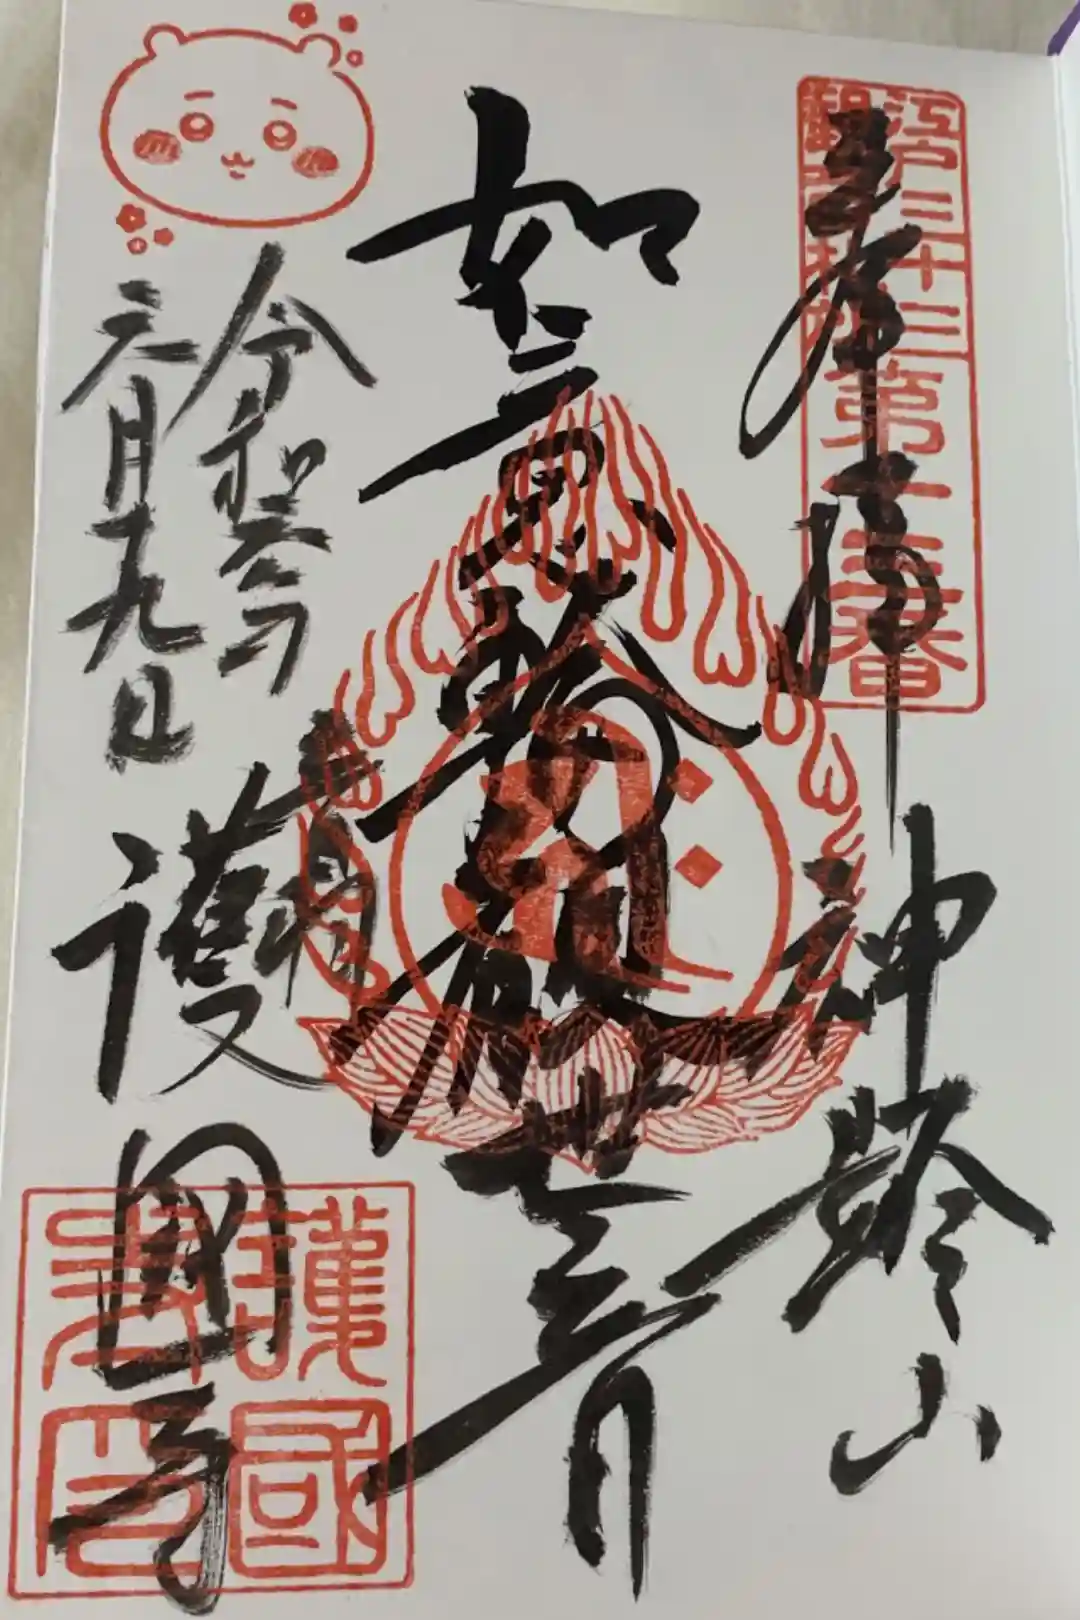 江戸三十三
観音札所
第十三番
奉拝
神齢山
如意輪観世音
令和
六月九日
護國寺
護國
寺印